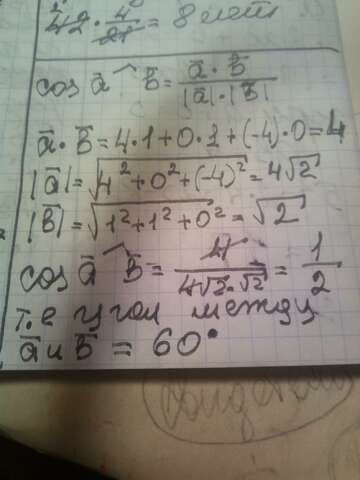 42 · 4/21 = 8 лет
cos a⃗ ^ b⃗ = a⃗ · b⃗ / |a⃗| · |b⃗|
a⃗ · b⃗ = 4·1+0·1+(-4)·0=4
|a⃗| = √4²+0²+(-4)² = 4√2
|b⃗| = √1²+1²+0² = √2
cos a⃗ ^ b⃗ = 4 / 4√2·√2 = 1/2
т.е угол между
a⃗ и b⃗ = 60°